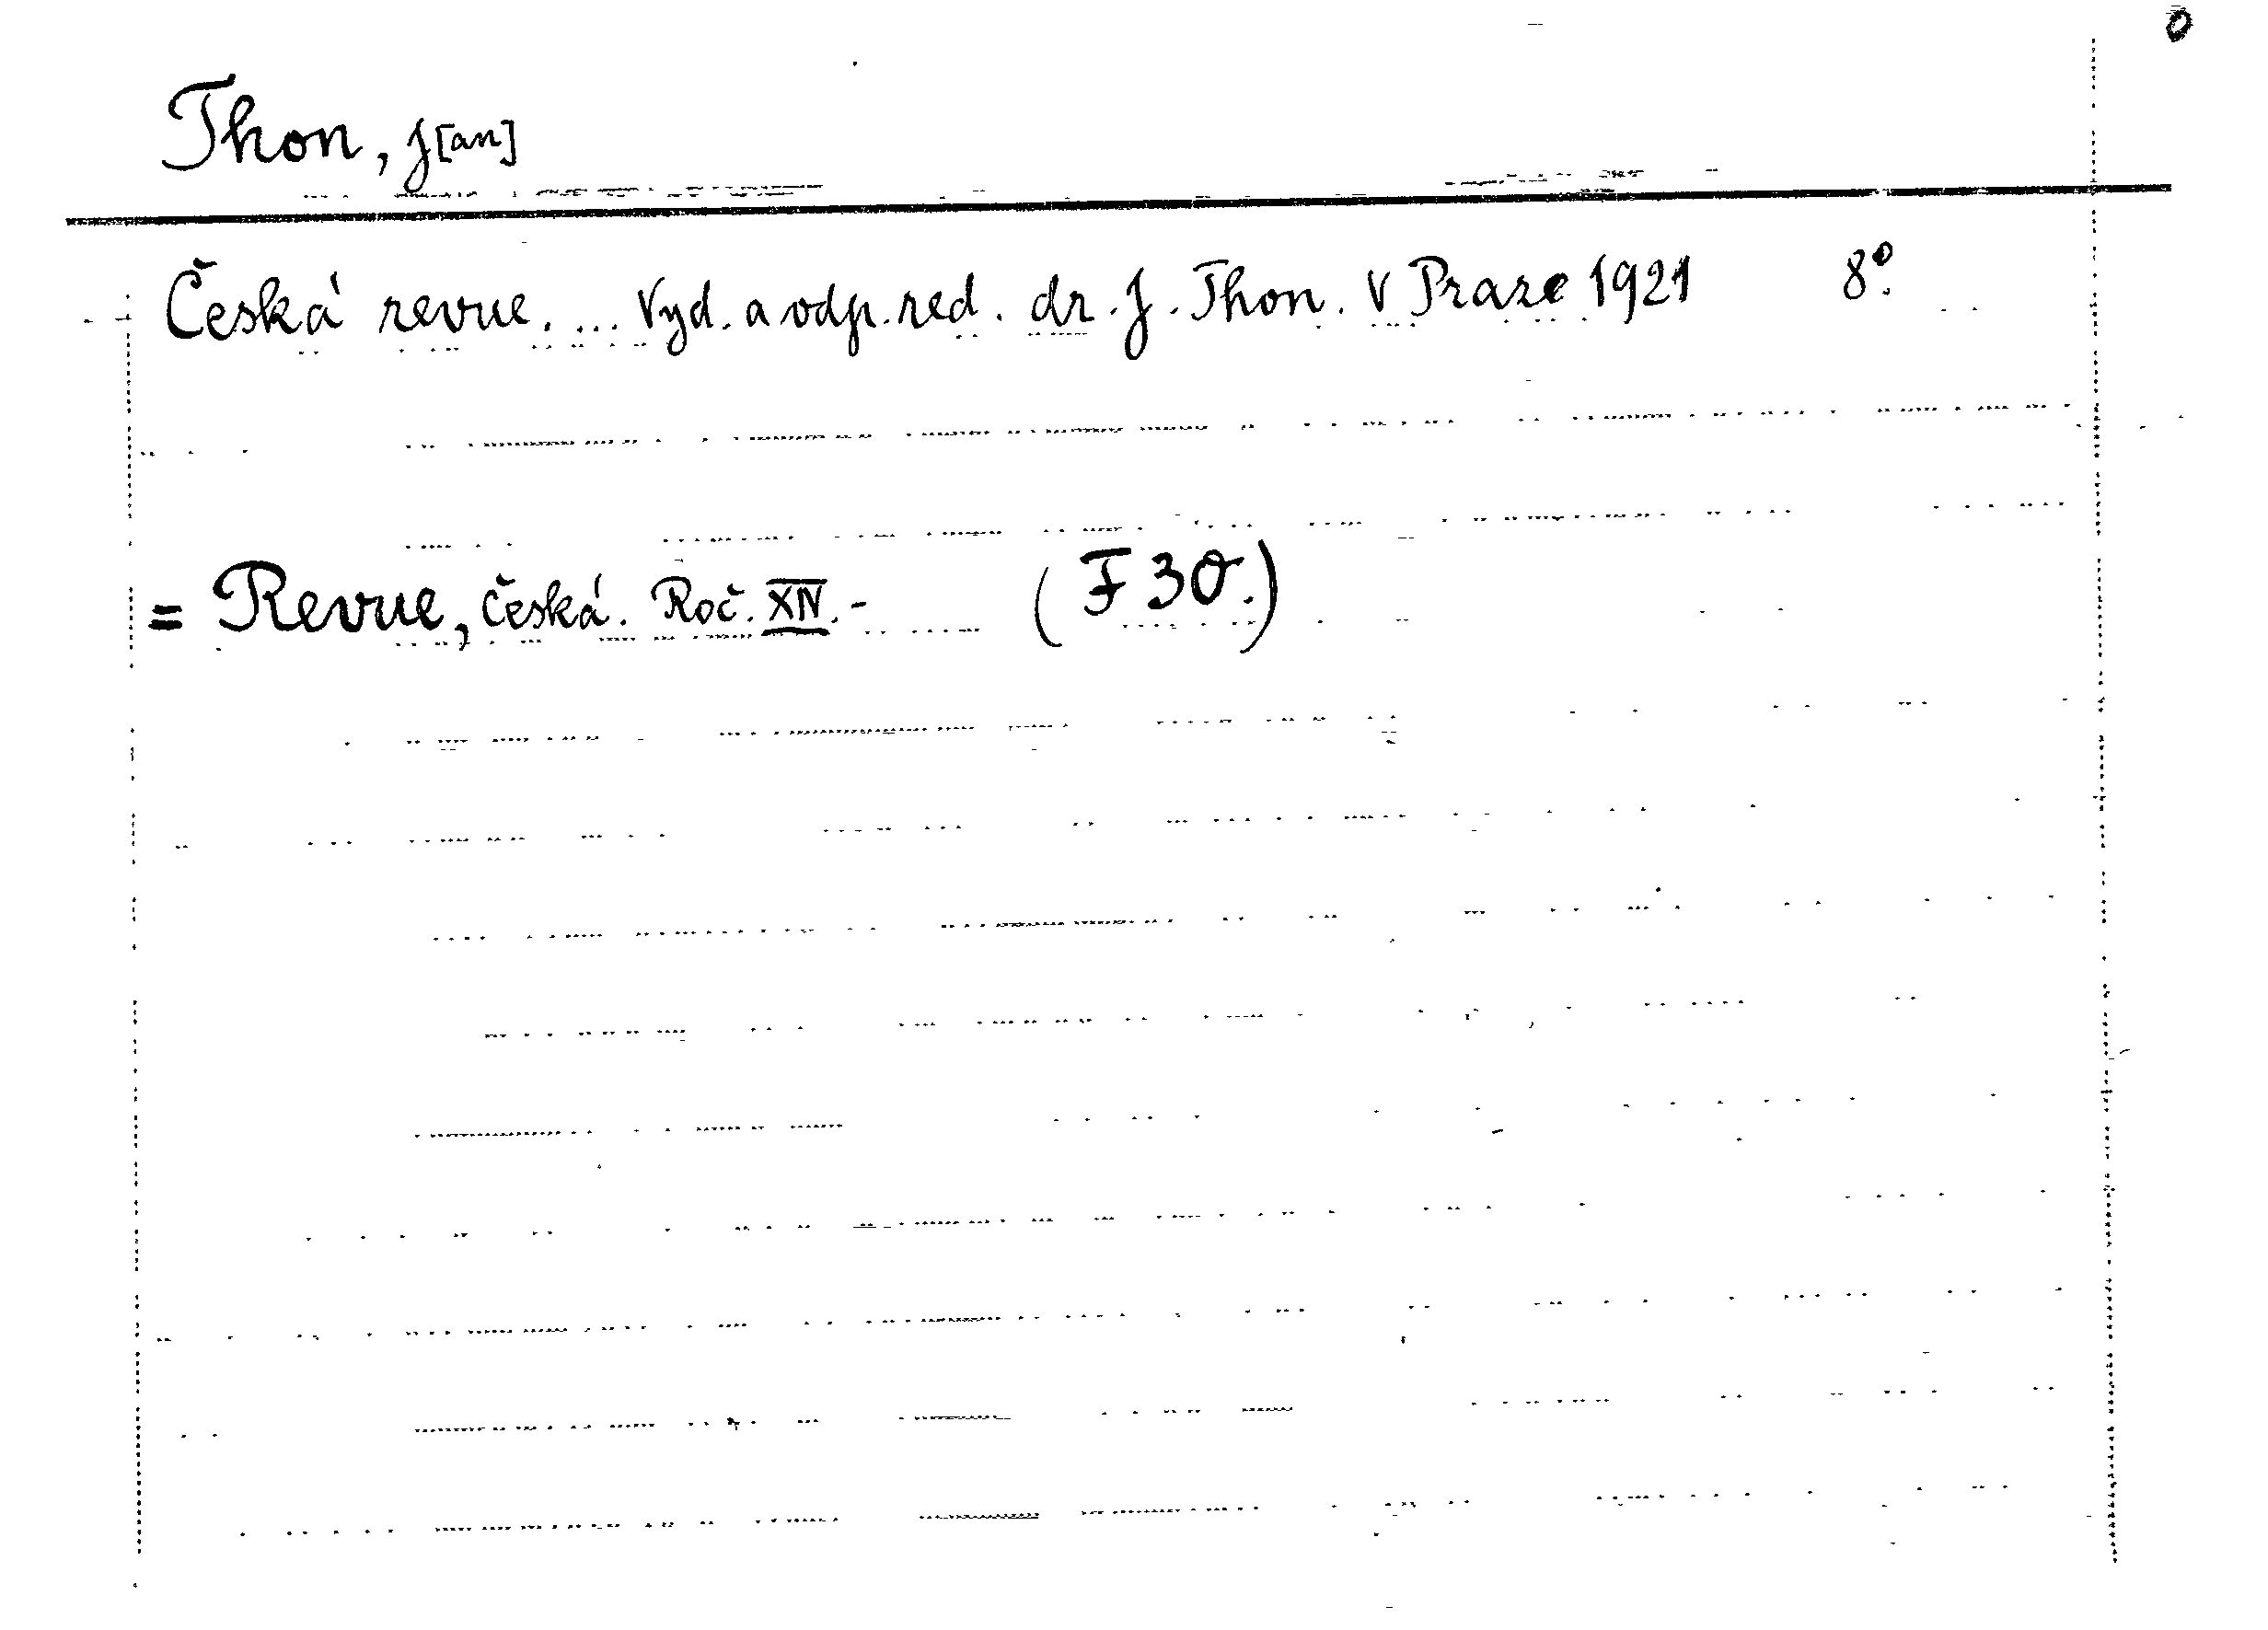 0
Thon, J[an]
Česká revue. ... Vyd. a odp. red. dr. J. Thon. V Praze 1921 8º.
= Revue, Česká. Roč. XIV. - (F 30.)